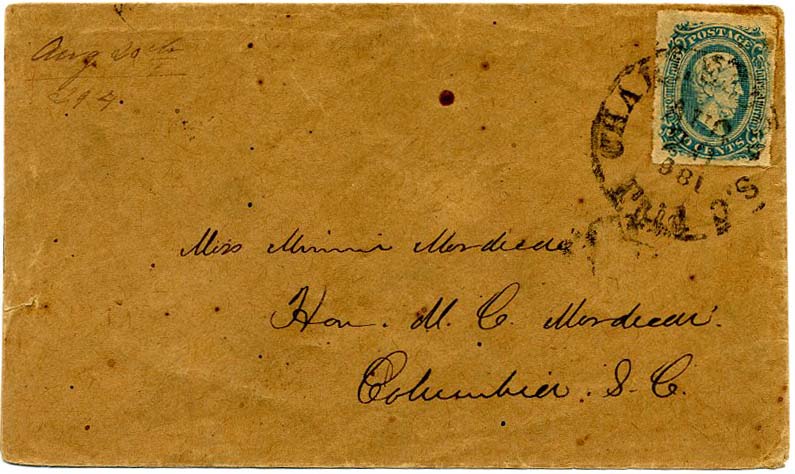 Aug 20th
294
POSTAGE
10 CENTS
CHA
S.C.
186
Miss Minnie Mordecai
Hon. M. C. Mordecai.
Columbia. S. C.